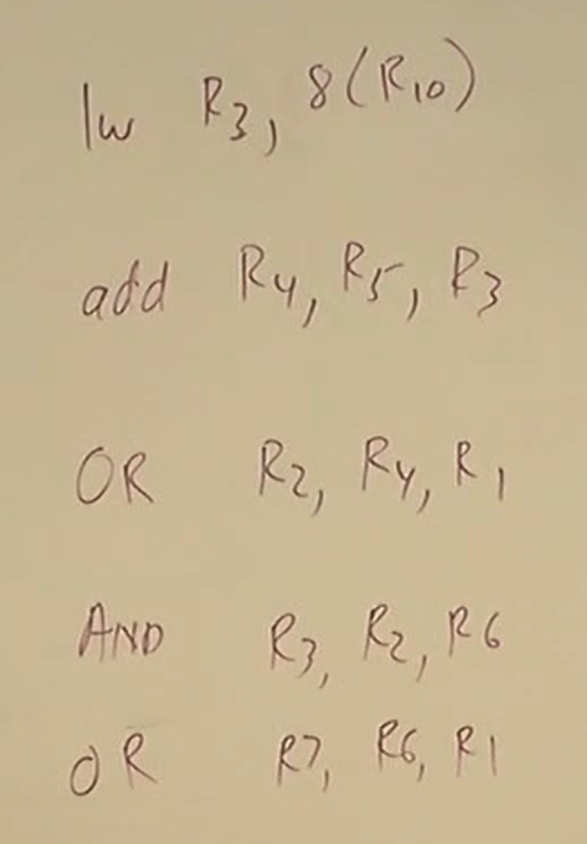 lw R3, 8(R10)
add R4, R5, R3
OR R2, R4, R1
AND R3, R2, R6
OR R7, R6, R1